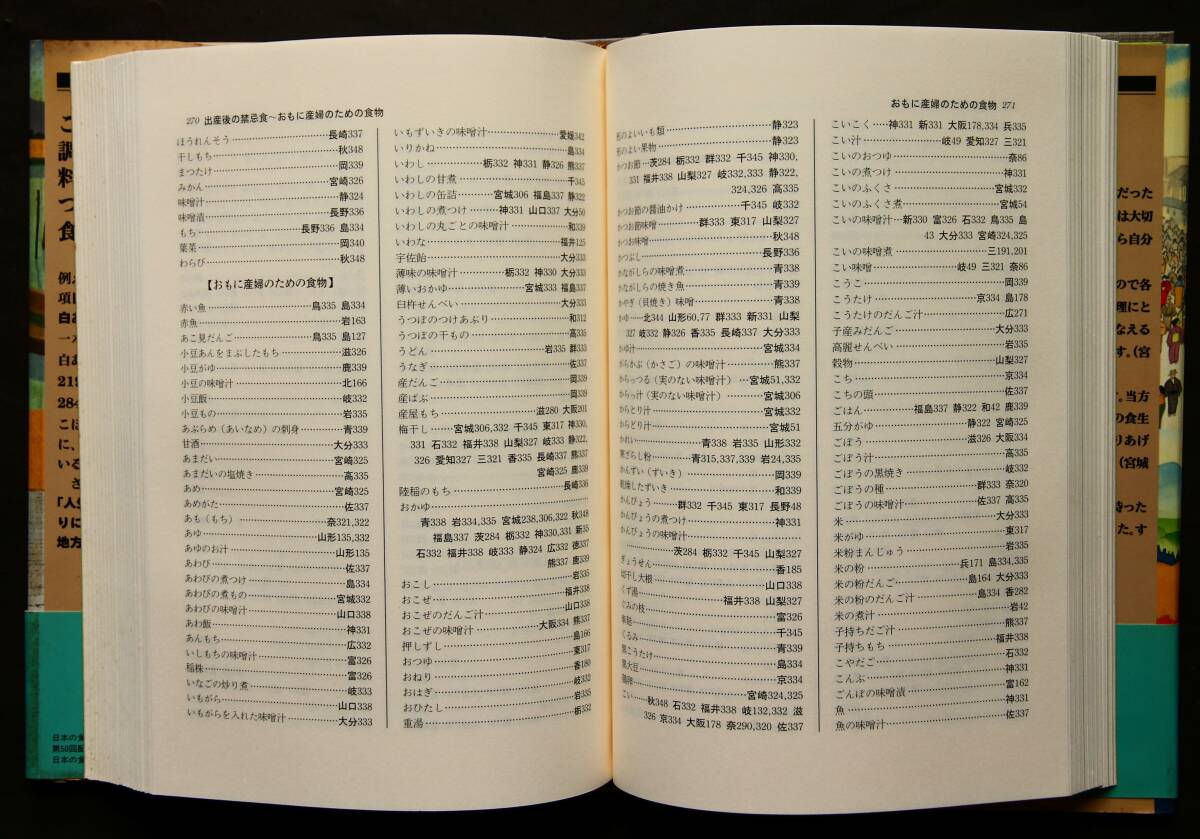 270 出産後の禁忌食～おもに産婦のための食物
ほうれんそう 長崎337
干しもち 秋348
まつたけ 岡339
みかん 宮崎326
味噌汁 静324
味噌漬 長野336
もち 長野336 島334
葉菜 岡340
わらび 秋348
【おもに産婦のための食物】
赤い魚 鳥335 島334
赤魚 岩163
あこ見だんご 鳥335 島127
小豆あんをまぶしたもち 滋326
小豆がゆ 鹿339
小豆の味噌汁 北166
小豆飯 岐332
小豆もの 岩335
あぶらめ（あいなめ）の刺身 青339
甘酒 大分333
あまだい 宮崎325
あまだいの塩焼き 高335
あめ 宮崎325
あめがた 佐337
あも（もち） 奈321,322
あゆ 山形135,332
あゆのお汁 山形135
あわび 佐337
あわびの煮つけ 島334
あわびの煮もの 宮城332
あわびの味噌汁 山口338
あわ飯 神331
あんもち 広332
いしもちの味噌汁 富326
稲株 富326
いなごの炒り煮 岐333
いもがら 山口338
いもがらを入れた味噌汁 大分333
いもずいきの味噌汁 愛媛342
いりかね 島334
いわし 栃332 神331 静326 熊337
いわしの甘煮 千345
いわしの缶詰 宮城306 福島337 静322
いわしの煮つけ 神331 山口337 大分50
いわしの丸ごとの味噌汁 和339
いわな 福井125
宇佐飴 大分333
薄味の味噌汁 栃332 神330 大分333
薄いおかゆ 宮城333 福島337
臼杵せんべい 大分333
うつぼのつけあぶり 和312
うつぼの干もの 高335
うどん 岩335 群333
うなぎ 佐337
産だんご 岡339
産ばぶ 岡339
産屋もち 滋280 大阪201
梅干し 宮城306,332 千345 東317 神330,
331 石332 福井338 山梨327 岐333 静322,
326 愛知327 三321 香335 長崎337 熊337
宮崎325 鹿339
陸稲のもち 長崎336
おかゆ
青338 岩334,335 宮城238,306,322 秋348
福島337 茨284 栃332 神330,331 新35
石332 福井338 岐333 静324 広332 徳337
熊337 鹿339
おこし 岩335
おこぜ 福井338
おこぜのだんご汁 山口338
おこぜの味噌汁 大阪334 熊337
押しずし 島166
おつゆ 東317
おねり 香180
おはぎ 岐332
おひたし 岩335
重湯 栃332
おもに産婦のための食物 271
形のよいいも類 静323
形のよい果物 静323
かつお節 茨284 栃332 群332 千345 神330,
331 福井338 山梨327 岐332,333 静322,
324,326 高335
かつお節の醤油かけ 千345 岐332
かつお節味噌 群333 東317 山梨327
かつお味噌 秋348
かつぶし 長野336
かながしらの味噌煮 青338
かながしらの焼き魚 青339
かやぎ（貝焼き）味噌 青338
かゆ 北344 山形60,77 群333 新331 山梨
327 岐332 静326 香335 長崎337 大分333
かゆ汁 宮城334
からかぶ（かさご）の味噌汁 熊337
からっつる（実のない味噌汁） 宮城51,332
からっ汁（実のない味噌汁） 宮城306
からとり汁 宮城332
からどり汁 宮城51
かれい 青338 岩335 山形332
寒ざらし粉 青315,337,339 岩24,335
かんずい（ずいき） 岡339
乾燥したずいき 和339
かんぴょう 群332 千345 東317 長野48
かんぴょうの煮つけ 神331
かんぴょうの味噌汁
茨284 栃332 千345 山梨327
ぎょうせん 香185
切干し大根 山口338
くず湯 福井338 山梨327
ぐみの枝 富326
千345
くるみ 青339
黒こうたけ 島334
黒大豆 京334
鶏卵 宮崎324,325
こい 秋348 石332 福井338 岐132,332 滋
326 京334 大阪178 奈290,320 佐337
こいこく 神331 新331 大阪178,334 兵335
こい汁 岐49 愛知327 三321
こいのおつゆ 奈86
こいの煮つけ 神331
こいのふくさ 宮城332
こいのふくさ煮 宮城54
こいの味噌汁 新330 富326 石332 鳥335 島
43 大分333 宮崎324,325
こいの味噌煮 三191,201
こい味噌 岐49 三321 奈86
こうこ 岡339
こうたけ 京334 島178
こうたけのだんご汁 広271
子産みだんご 大分333
高麗せんべい 岩335
穀物 山梨327
こち 京334
こちの頭 佐337
ごはん 福島337 静322 和42 鹿339
五分がゆ 静322 宮崎325
ごぼう 滋326 大阪334
ごぼう汁 高335
ごぼうの黒焼き 岐332
ごぼうの種 群333 奈320
ごぼうの味噌汁 佐337 高335
米 大分333
米がゆ 東317
米粉まんじゅう 岩335
米の粉 兵171 島334,335
米の粉だんご 島164 大分333
米の粉のだんご汁 島334 香282
米の煮汁 岩42
子持ちだご汁 熊337
子持ちもち 福井338
こやだご 石332
こんぶ 神331
ごんぼの味噌漬 富162
魚 神331
魚の味噌汁 佐337
日本の食
第50回配
日本の食